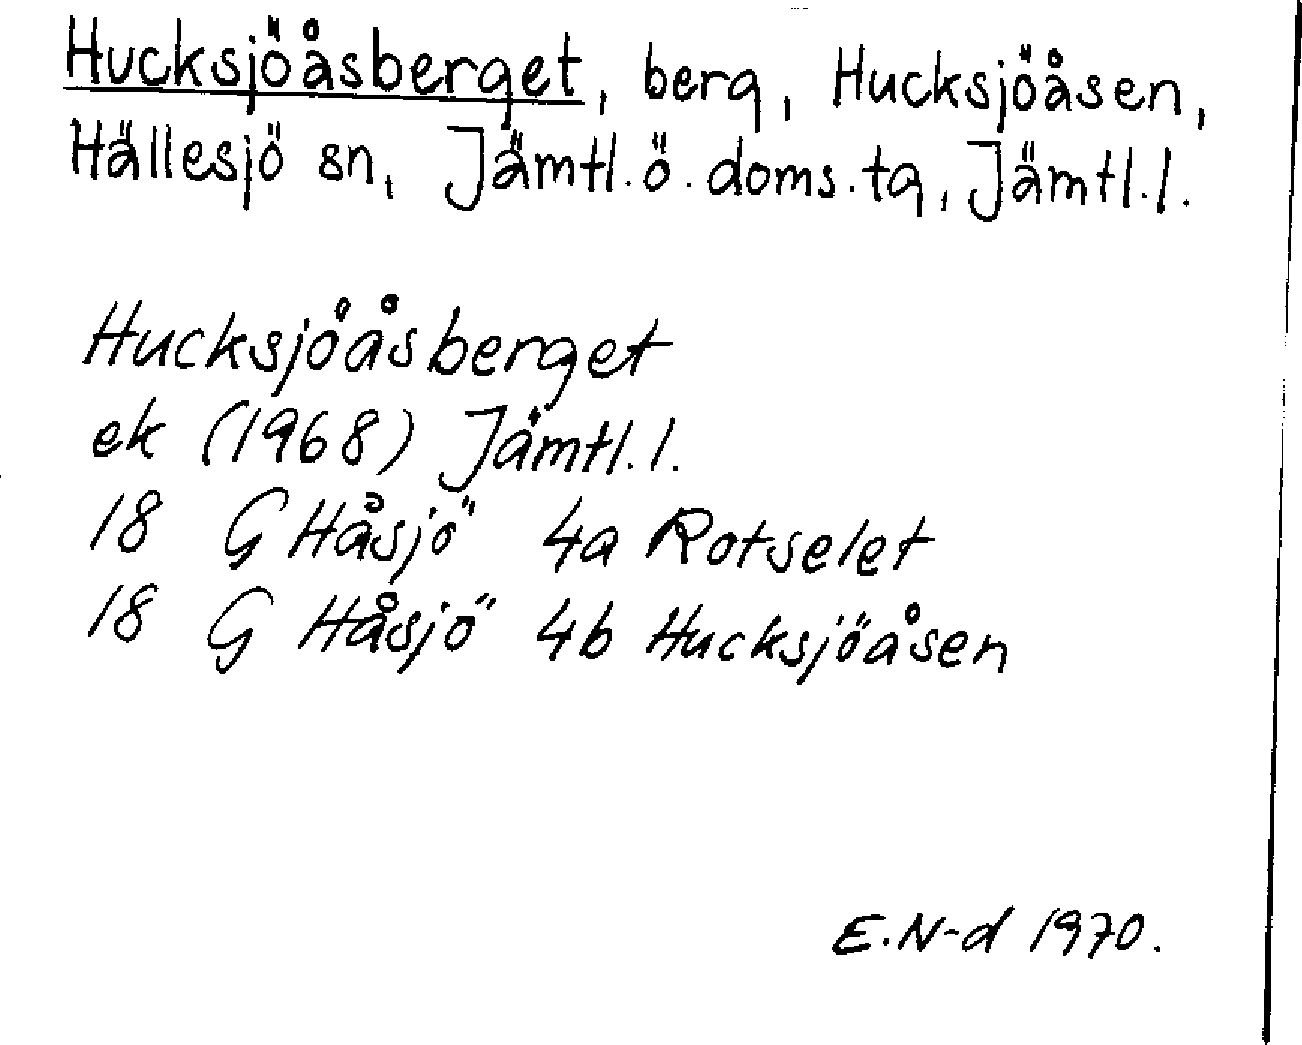 Hucksjöåsberget, berg, Hucksjöåsen,
Hällesjö sn, Jämtl.ö.doms.tg, Jämtl.l.
Hucksjöåsberget
ek (1968) Jämtl.l.
18 G Håsjö 4a Rotselet
18 G Håsjö 4b Hucksjöåsen
E.N-d 1970.